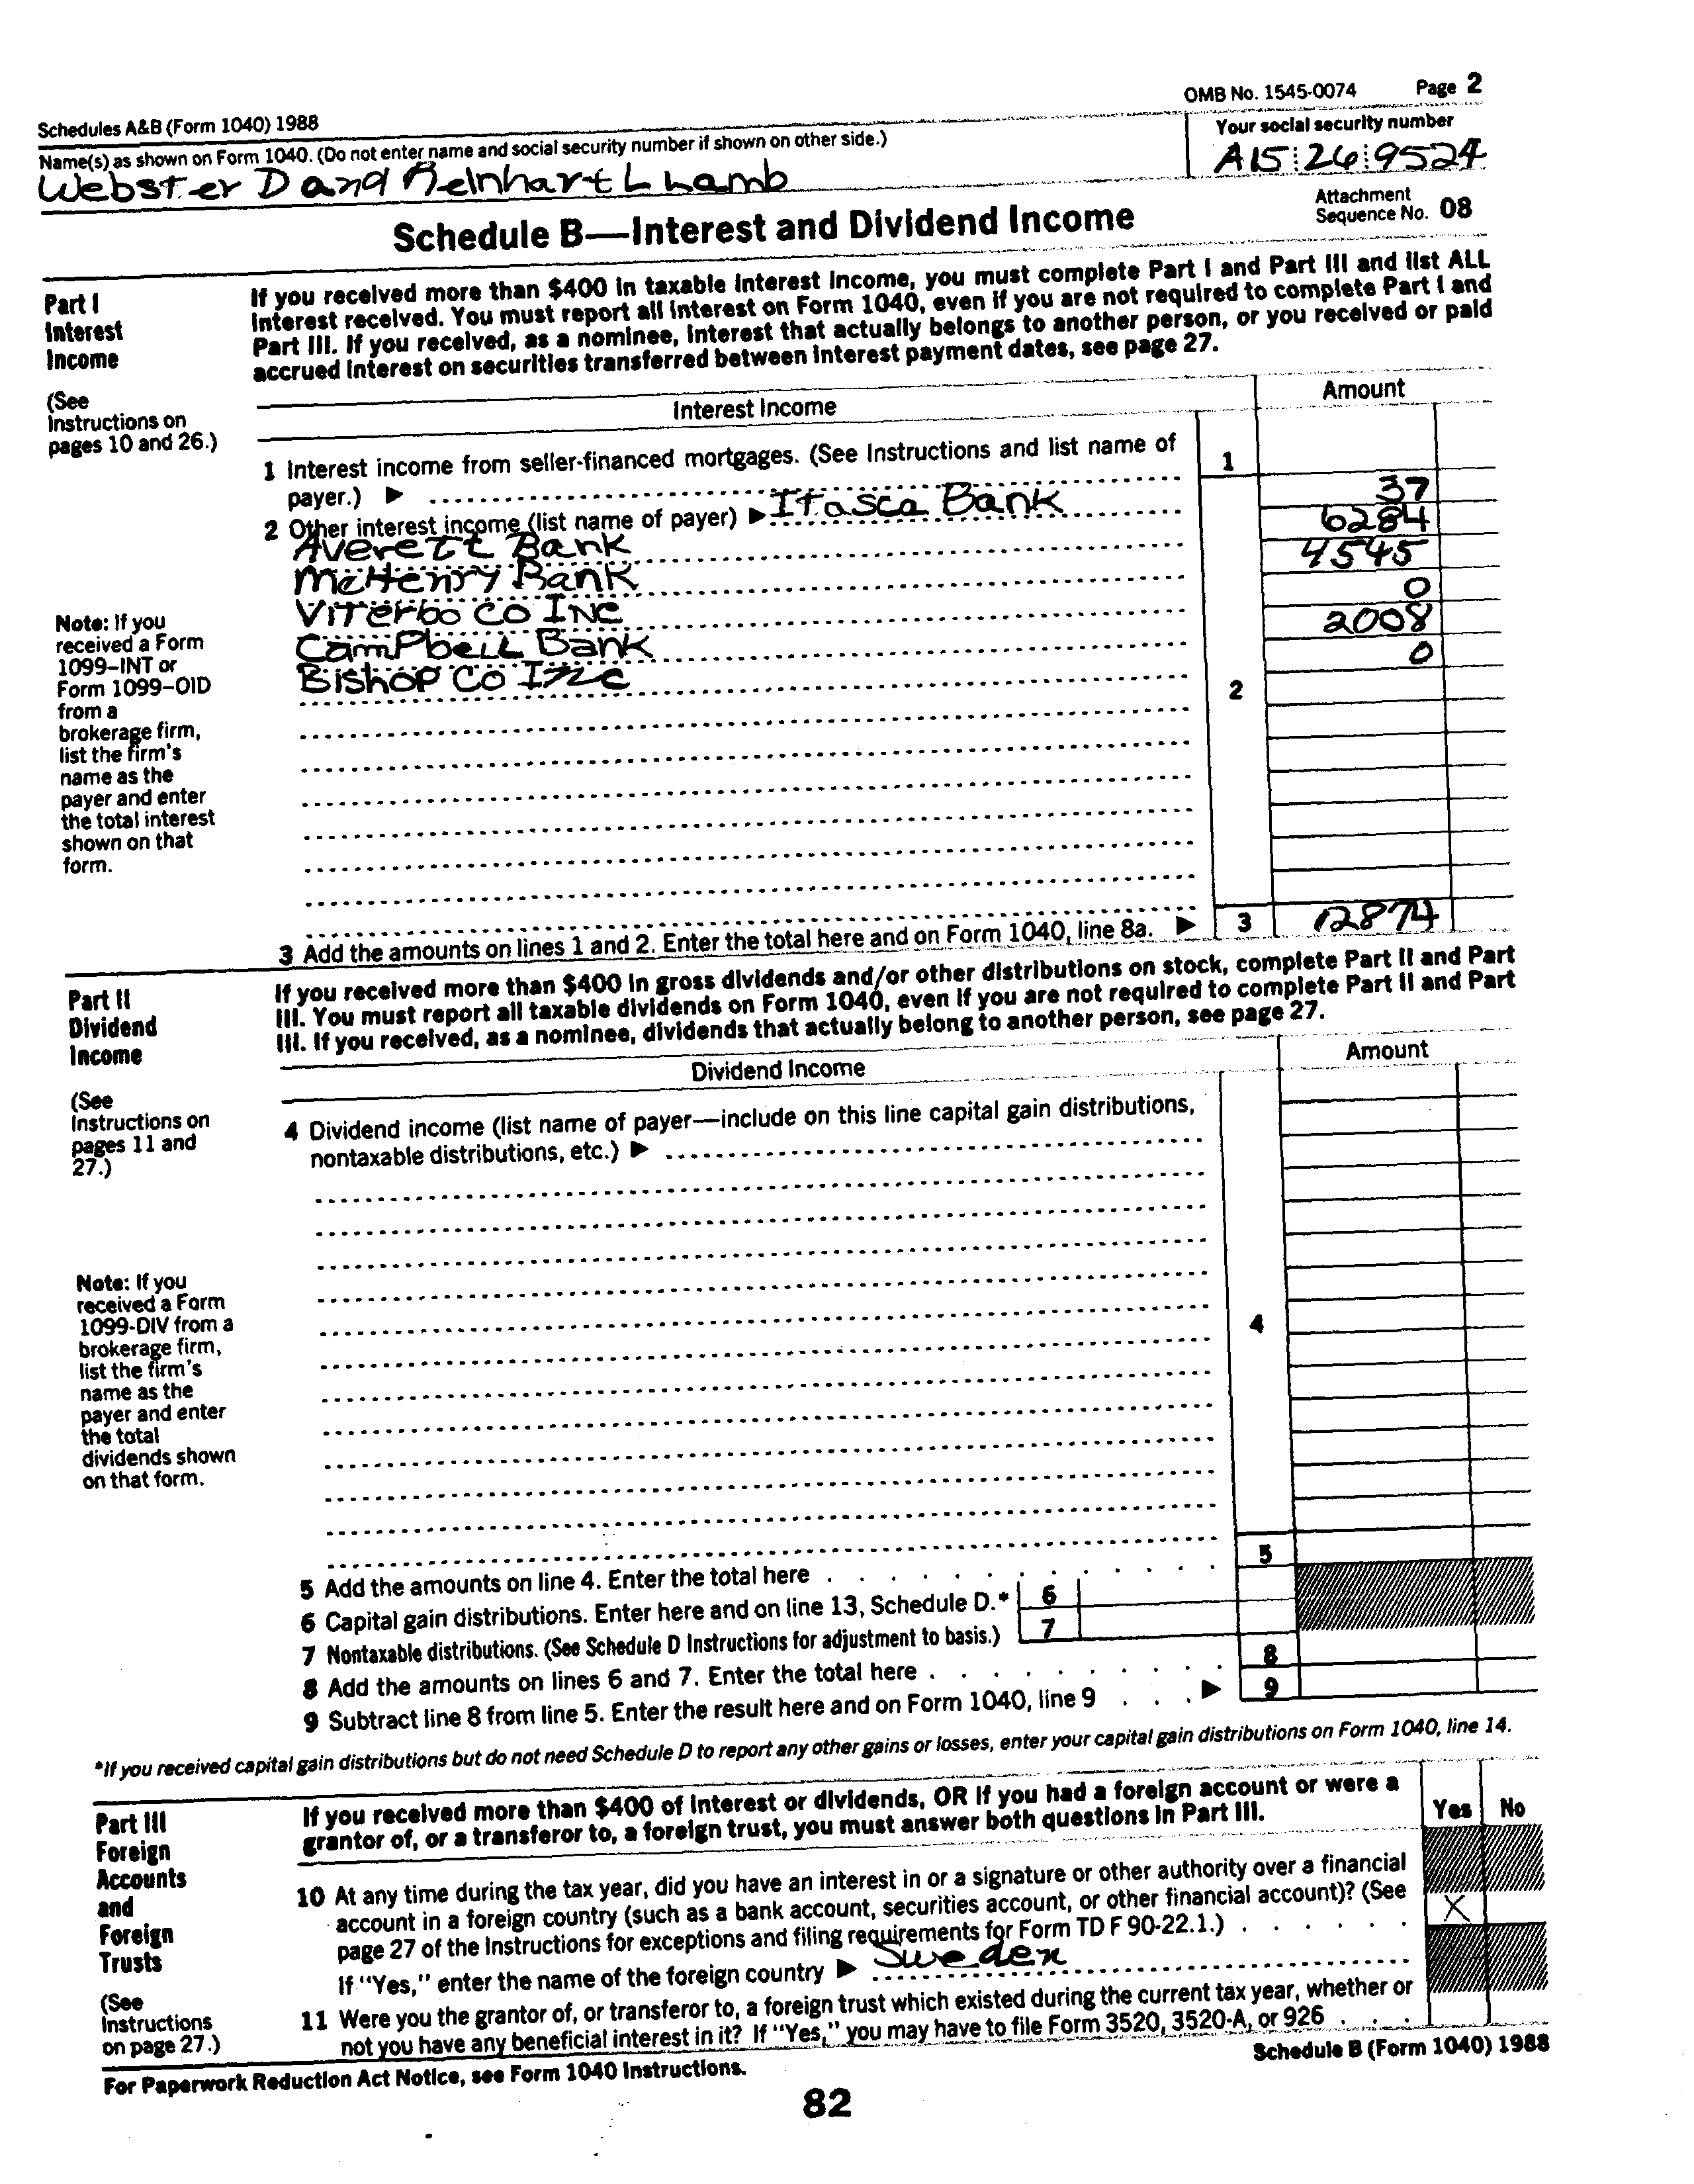 OMB No. 1545-0074 Page 2
Schedules A&B (Form 1040) 1988
Name(s) as shown on Form 1040. (Do not enter name and social security number if shown on other side.)
Your social security number
Webster D and Reinhart L Lamb
A15 26 9524
Attachment
Sequence No. 08
Schedule B—Interest and Dividend Income
Part I
Interest
Income
(See
Instructions on
pages 10 and 26.)
If you received more than $400 in taxable interest income, you must complete Part I and Part III and list ALL
interest received. You must report all interest on Form 1040, even if you are not required to complete Part I and
Part III. If you received, as a nominee, interest that actually belongs to another person, or you received or paid
accrued interest on securities transferred between interest payment dates, see page 27.
Interest Income
Amount
1 Interest income from seller-financed mortgages. (See Instructions and list name of
payer.) ▶
1
2 Other interest income (list name of payer) ▶ Itasca Bank 37
Averett Bank 6284
McHenry Bank 4545
Viterbo Co Inc 0
Campbell Bank 2008
Bishop Co Inc 0
2
Note: If you
received a Form
1099–INT or
Form 1099–OID
from a
brokerage firm,
list the firm's
name as the
payer and enter
the total interest
shown on that
form.
3 Add the amounts on lines 1 and 2. Enter the total here and on Form 1040, line 8a. ▶ 3 12874
Part II
Dividend
Income
(See
Instructions on
pages 11 and
27.)
If you received more than $400 in gross dividends and/or other distributions on stock, complete Part II and Part
III. You must report all taxable dividends on Form 1040, even if you are not required to complete Part II and Part
III. If you received, as a nominee, dividends that actually belong to another person, see page 27.
Dividend Income
Amount
4 Dividend income (list name of payer—include on this line capital gain distributions,
nontaxable distributions, etc.) ▶
4
Note: If you
received a Form
1099-DIV from a
brokerage firm,
list the firm's
name as the
payer and enter
the total
dividends shown
on that form.
5 Add the amounts on line 4. Enter the total here 5
6 Capital gain distributions. Enter here and on line 13, Schedule D.* 6
7 Nontaxable distributions. (See Schedule D Instructions for adjustment to basis.) 7
8 Add the amounts on lines 6 and 7. Enter the total here 8
9 Subtract line 8 from line 5. Enter the result here and on Form 1040, line 9 ▶ 9
*If you received capital gain distributions but do not need Schedule D to report any other gains or losses, enter your capital gain distributions on Form 1040, line 14.
Part III
Foreign
Accounts
and
Foreign
Trusts
(See
Instructions
on page 27.)
If you received more than $400 of interest or dividends, OR if you had a foreign account or were a
grantor of, or a transferor to, a foreign trust, you must answer both questions in Part III.
Yes No
10 At any time during the tax year, did you have an interest in or a signature or other authority over a financial
account in a foreign country (such as a bank account, securities account, or other financial account)? (See
page 27 of the Instructions for exceptions and filing requirements for Form TD F 90-22.1.) X
If "Yes," enter the name of the foreign country ▶ Sweden
11 Were you the grantor of, or transferor to, a foreign trust which existed during the current tax year, whether or
not you have any beneficial interest in it? If "Yes," you may have to file Form 3520, 3520-A, or 926
For Paperwork Reduction Act Notice, see Form 1040 Instructions.
Schedule B (Form 1040) 1988
82